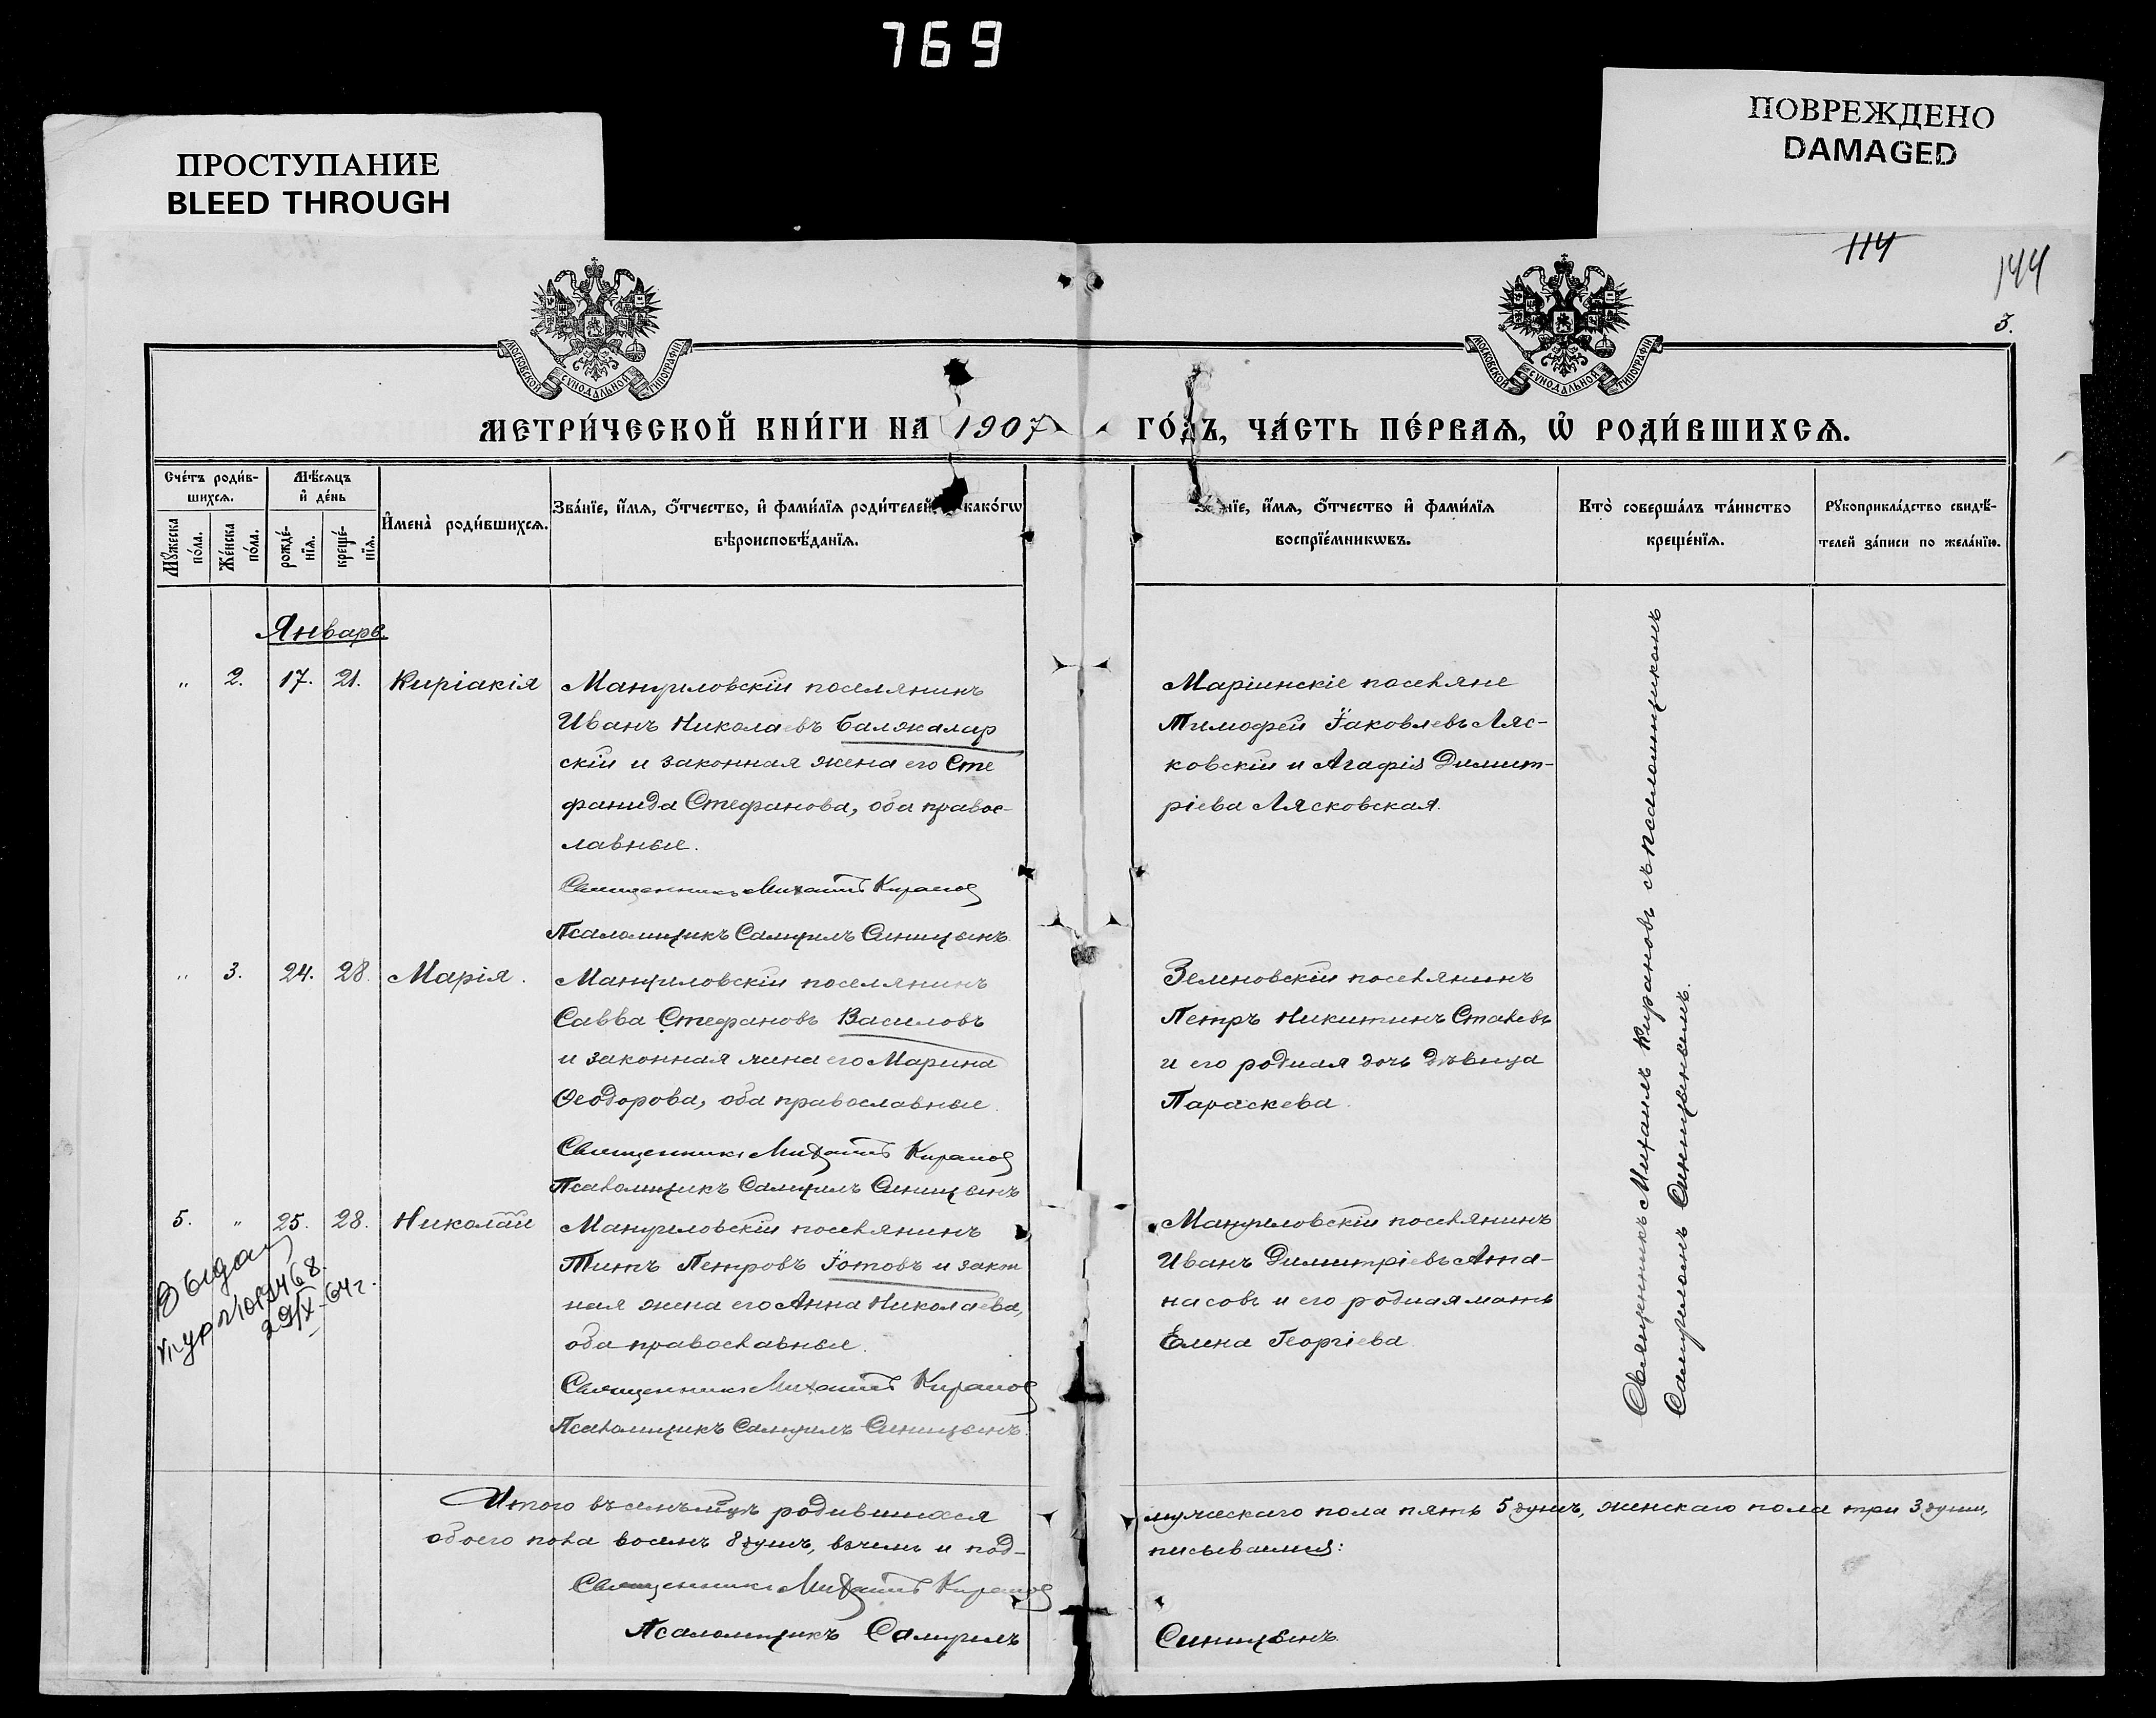 769
ПРОСТУПАНИЕ
BLEED THROUGH
ПОВРЕЖДЕНО
DAMAGED
114
144
3.
МОСКОВСКОЙ СѴНОДАЛЬНОЙ ТИПОГРАФІИ
МОСКОВСКОЙ СѴНОДАЛЬНОЙ ТИПОГРАФІИ
МЕТРИ́ЧЕСКОЙ КНИ́ГИ НА 1907 ГО́ДЪ, ЧА́СТЬ ПЕ́РВАѦ, Ѡ҆ РОДИ́ВШИХСѦ.
Сче́тъ роди́в-
шихсѧ.
Мꙋ́жеска
по́ла.
Же́нска
по́ла.
Мѣ́сѧцъ
и҆ де́нь
рожде́-
нїѧ.
креще́-
нїѧ.
И҆мена̀ роди́вшихсѧ.
Зва́нїе, и҆́мѧ, ѻ҆́тчество, и҆ фами́лїѧ роди́телей, како́гѡ
вѣроисповѣ́данїѧ.
нїе, и҆́мѧ, ѻ҆́тчество и҆ фами́лїѧ
воспрїе́мникѡвъ.
Кто̀ соверша́лъ та́инство
креще́нїѧ.
Рꙋкоприкла́дство свидѣ́-
телей за́писи по жела́нїю.
Январь.
" 2. 17. 21. Киріакія
Мануиловскій поселянинъ
Иванъ Николаевъ Балжалар
скій и законная жена его Сте
фанида Стефанова, оба правос-
лавные.
Священникъ Михаилъ Кирановъ
Псаломщикъ Самуилъ Синицынъ.
Маріинскіе поселяне
Тимофей Іаковлевъ Ляс-
ковскій и Агафія Димит-
ріева Лясковская.
" 3. 24. 28. Марія.
Мануиловскій поселянинъ
Савва Стефановъ Василовъ
и законная жена его Марина
Ѳеодорова, оба православные.
Священникъ Михаилъ Кирановъ
Псаломщикъ Самуилъ Синицынъ
Зеленовскій поселянинъ
Петръ Никитинъ Сталевъ
и его родная дочь дѣвица
Параскева.
5. " 25. 28. Николай
Мануиловскій поселянинъ
Титъ Петровъ Іотовъ и закон
ная жена его Анна Николаева,
оба православные.
Священникъ Михаилъ Кирановъ
Псаломщикъ Самуилъ Синицынъ.
Мануиловскій поселянинъ
Иванъ Димитріевъ Ата-
насовъ и его родная мать
Елена Георгіева.
29/IX-64 г.
Священникъ Михаилъ Кирановъ съ псаломщикомъ
Самуиломъ Синицынымъ.
Итого въ семъ мѣсяцѣ родившихся мужескаго пола пять 5 душъ, женскаго пола три 3 души,
обоего пола восемь 8 душъ, въ чемъ и под- писываемся:
Священникъ Михаилъ Кирановъ
Псаломщикъ Самуилъ Синицынъ.